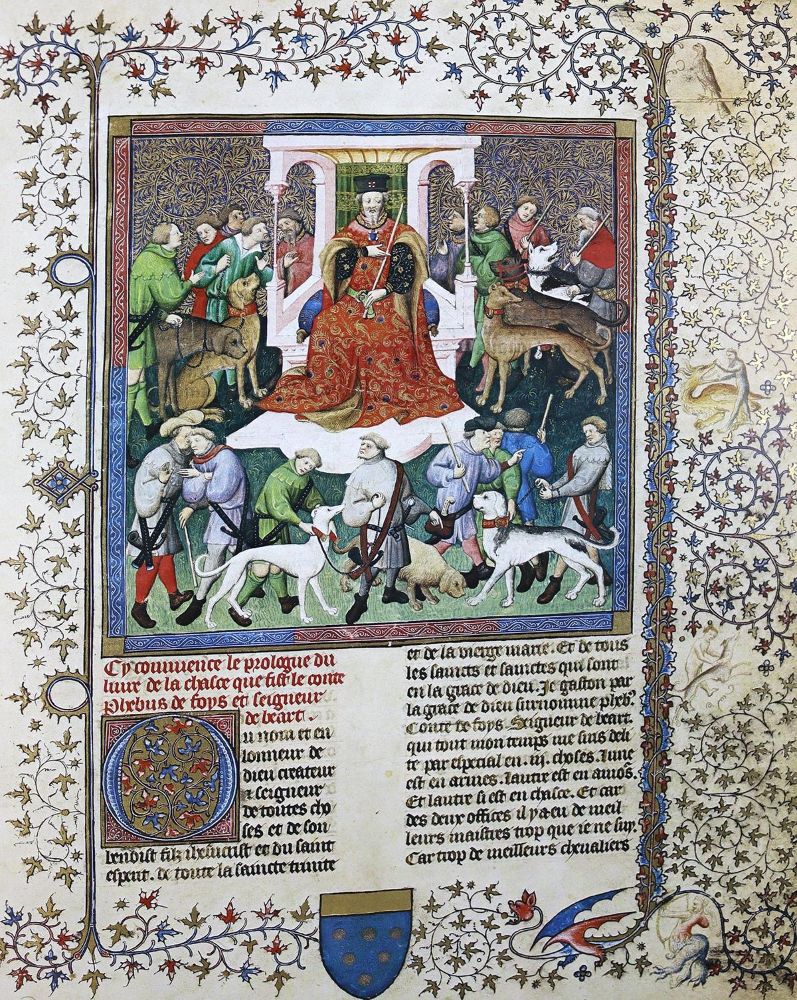 Cy commence le prologue du
liure de la chasce que fist le conte
Phebus de foys et seigneur
de bearn.
Ou nom et en
lonneur de
dieu createur
& seigneur
de toutes cho
ses et de son
benoist filz ihesucrist et du saint
esperit. de toute la saincte trinite
et de la vierge marie. Et de tous
les saincts et sainctes qui sont
en la grace de dieu. Je gaston par
la grace de dieu surnomme pheb9
Conte de foys. Seigneur de bearn.
qui tout mon temps me suis deli
te par especial en .iij. choses. Lune
est en armes. lautre est en amors.
Et lautre si est en chasce. Et car
des deux offices il ya eu de meil
leurs maistres trop que ie ne suy.
Car trop de meilleurs cheualiers